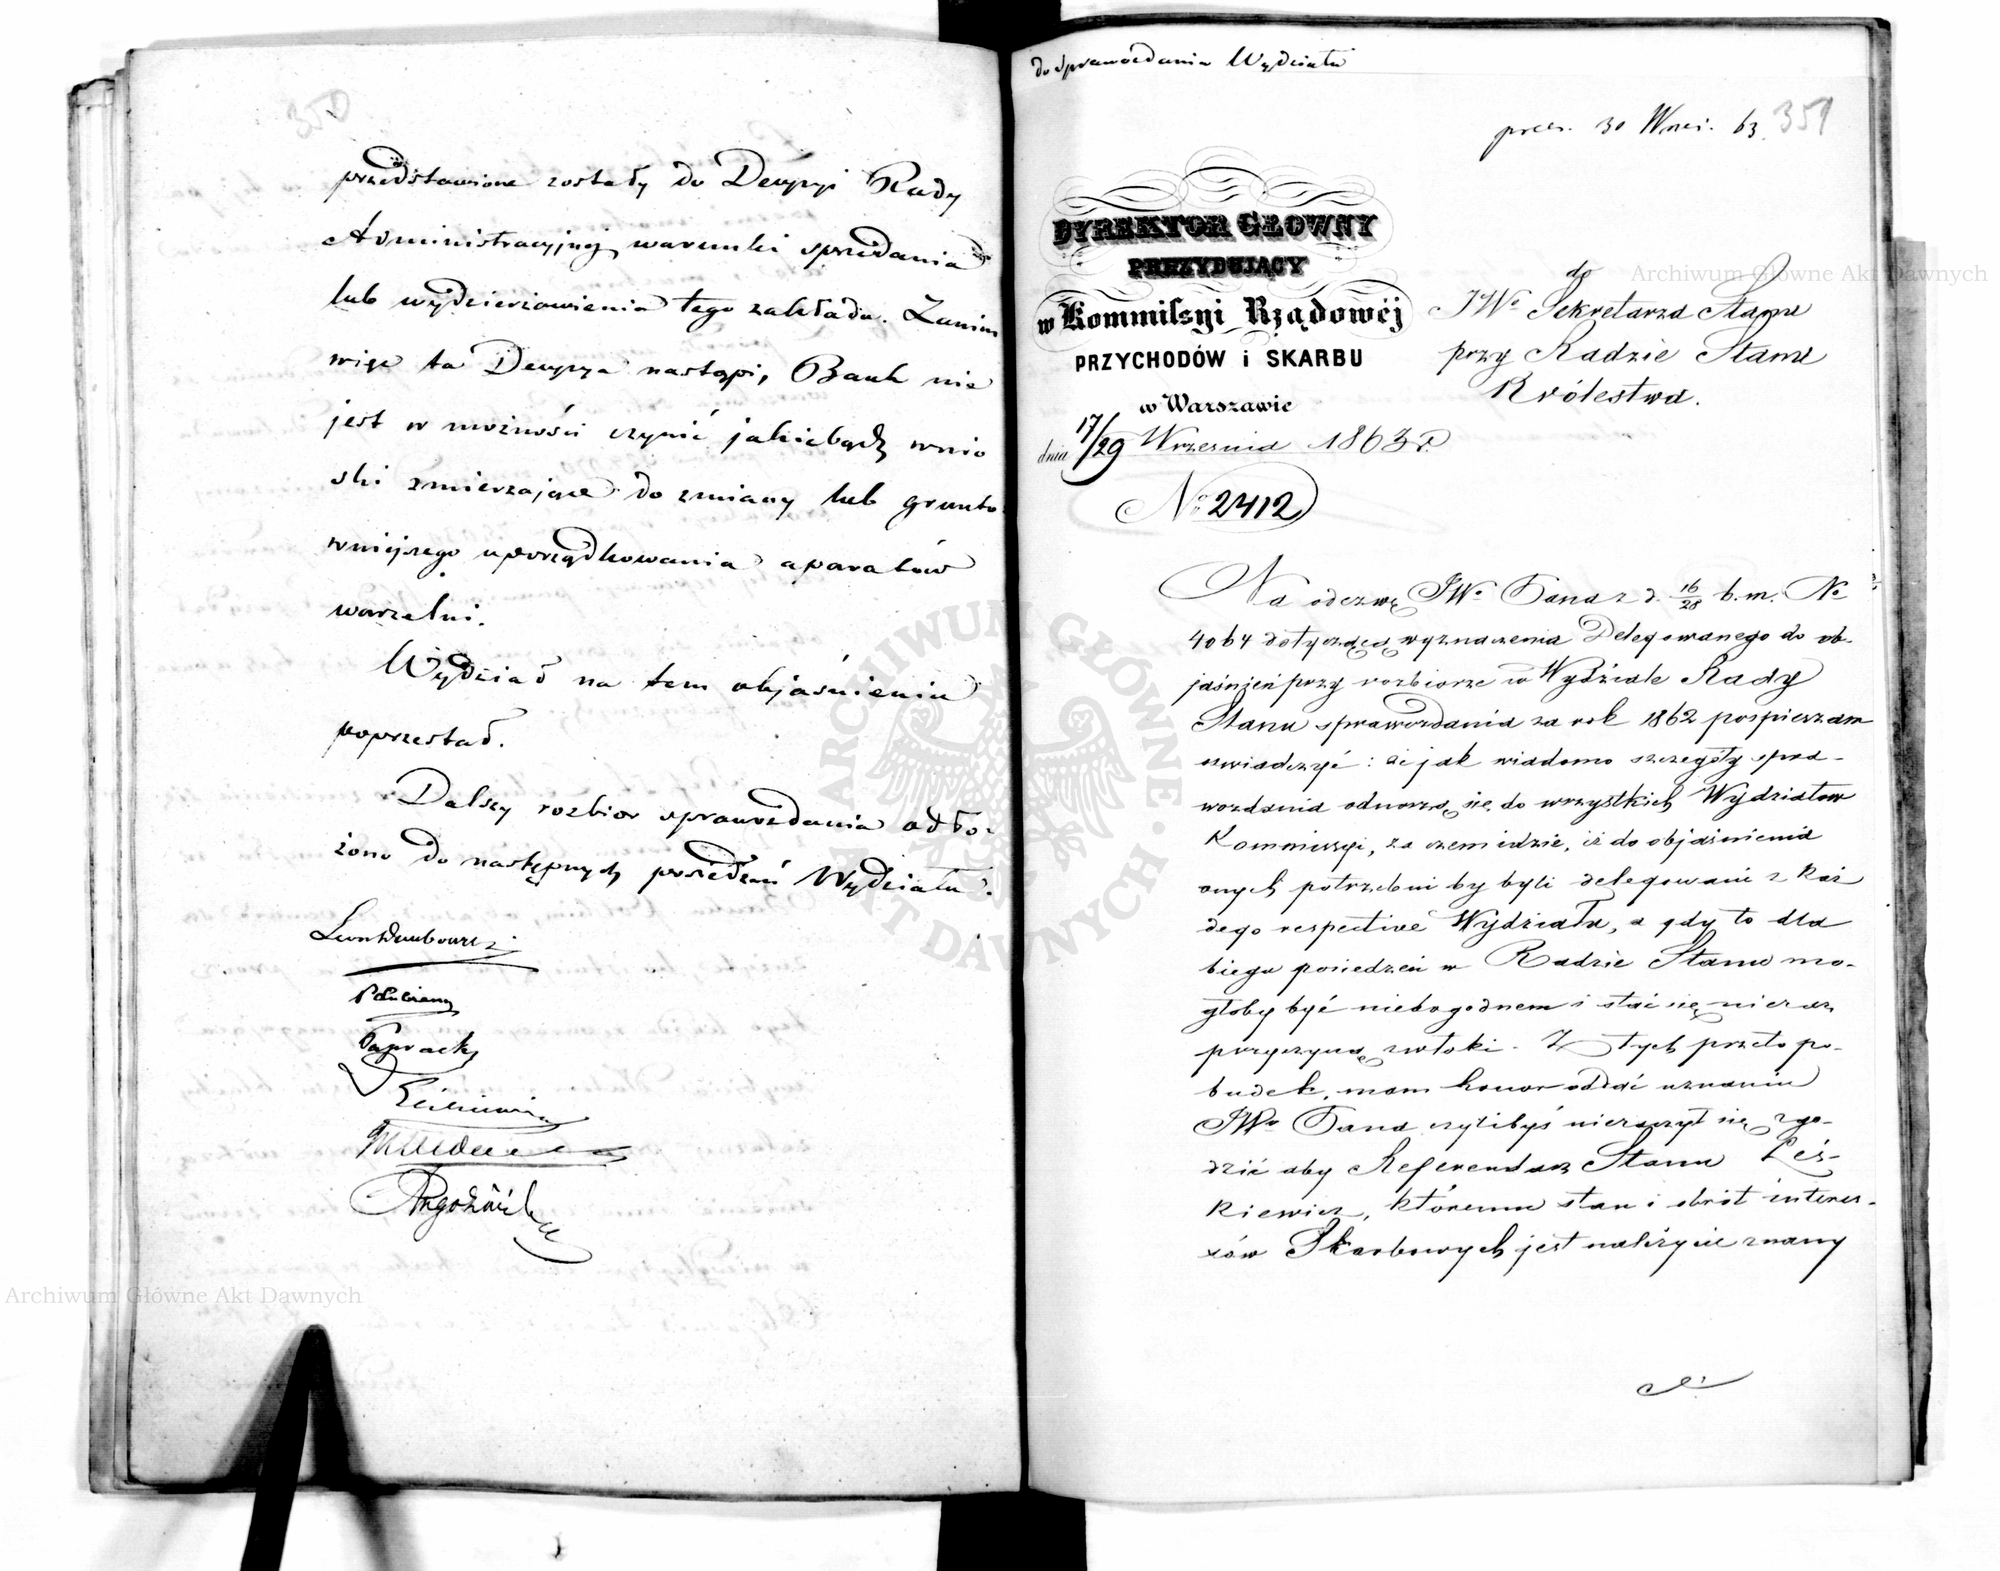 350
przedstawione zostały do Decyzyi Rady
Administracyjnej warunki sprzedania
lub wydzierżawienia tego zakładu. Zanim
więc ta Decyzya nastąpi, Bank nie
jest w możności czynić jakiebądź wnio
ski zmierzające do zmiany lub grunto
wniejszego uporządkowania aparatów
warzelni.
Wydział na tem objaśnieniu
poprzestał.
Dalszy rozbiór sprawozdania odło-
żono do następnych posiedzeń Wydziału.
do sprawozdania Wydziału
prez. 30 Wrześ. 63.
351
DYREKTOR GŁÓWNY
PREZYDUJĄCY
w Kommissyi Rządowéj
PRZYCHODÓW i SKARBU
w Warszawie
dnia 17/29 Września 1863 r.
No 2412
do
JWo Sekretarza Stanu
przy Radzie Stanu
Królestwa.
Na odezwę JWo Pana z d. 16/28 b.m. No
4064 dotyczącą wyznaczenia Delegowanego do ob-
jaśnień przy rozbiorze w Wydziale Rady
Stanu sprawozdania za rok 1862 pospieszam
oświadczyć: że jak wiadomo szczegóły spra-
wozdania odnoszą się do wszystkich Wydziałów
Kommissyi, za czem idzie, iż do objaśnienia
onych potrzebni by byli delegowani z każ
dego respective Wydziału, a gdy to dla
biegu posiedzeń w Radzie Stanu mo-
głoby być niedogodnem i stać się nieraz
przyczyną zwłoki. Z tych przeto po-
budek, mam honor oddać uznaniu
JWo Pana czylibyś nieraczył się zgo-
dzić aby Referendarz Stanu Leś-
kiewicz, któremu stan i obrót interes-
sów Skarbowych jest należycie znany
Archiwum Główne Akt Dawnych
Archiwum Główne Akt Dawnych
ARCHIWUM GŁÓWNE AKT DAWNYCH